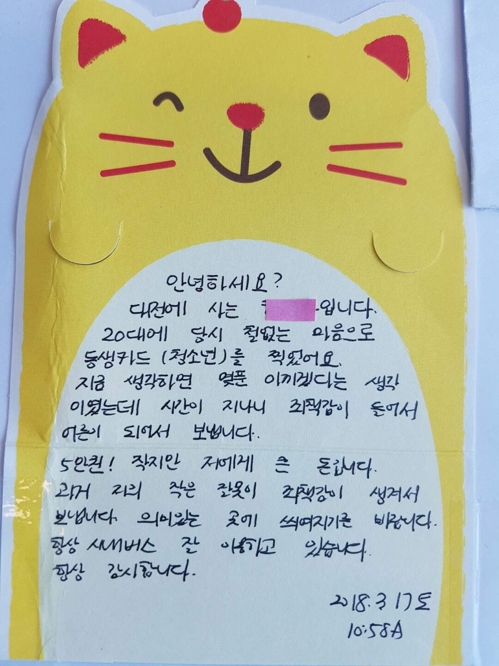 안녕하세요?
대전에 사는 입니다.
20대에 당시 철없는 마음으로
동생카드 (청소년)를 찍었어요.
지금 생각하면 몇푼 아끼겠다는 생각
이였는데 시간이 지나니 죄책감이 들어서
어른이 되어서 보냅니다.
5만원! 작지만 저에게 큰 돈입니다.
과거 저의 작은 잘못이 죄책감이 생겨서
보냅니다. 의미있는 곳에 쓰여지기를 바랍니다.
항상 시내버스 잘 이용하고 있습니다.
항상 감사합니다.
2018. 3 17 토
10:58A